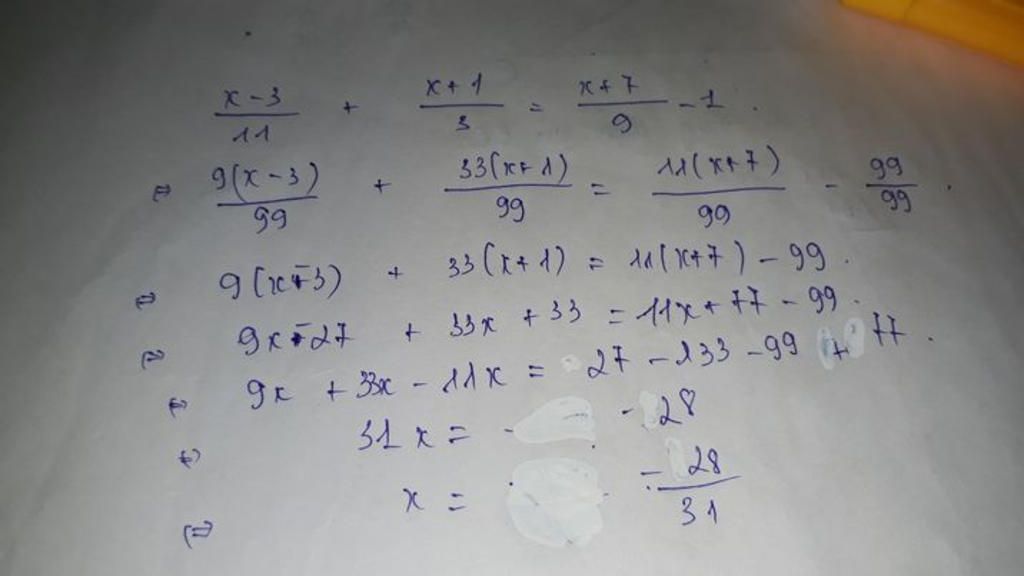 x-3/11 + x+1/3 = x+7/9 - 1.
⇔ 9(x-3)/99 + 33(x+1)/99 = 11(x+7)/99 - 99/99.
⇔ 9(x-3) + 33(x+1) = 11(x+7) - 99.
⇔ 9x-27 + 33x + 33 = 11x + 77 - 99.
⇔ 9x + 33x - 11x = 27 - 133 - 99 + 77.
⇔ 31x = -28
⇔ x = -28/31